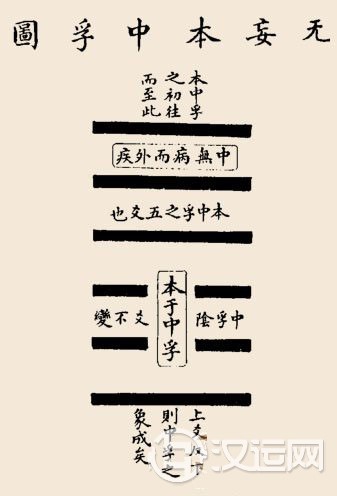 无妄本中孚圖
本中孚
之初往
而至此
中無病而外疾
本中孚之五爻也
中孚陰
本于中孚
爻不變
上爻反下
則中孚之
象成矣
汉运网